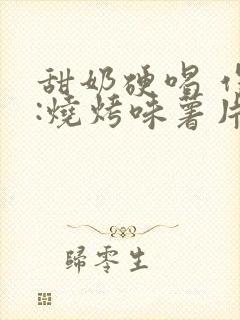 甜奶硬喝
:燒烤味薯片
歸零生